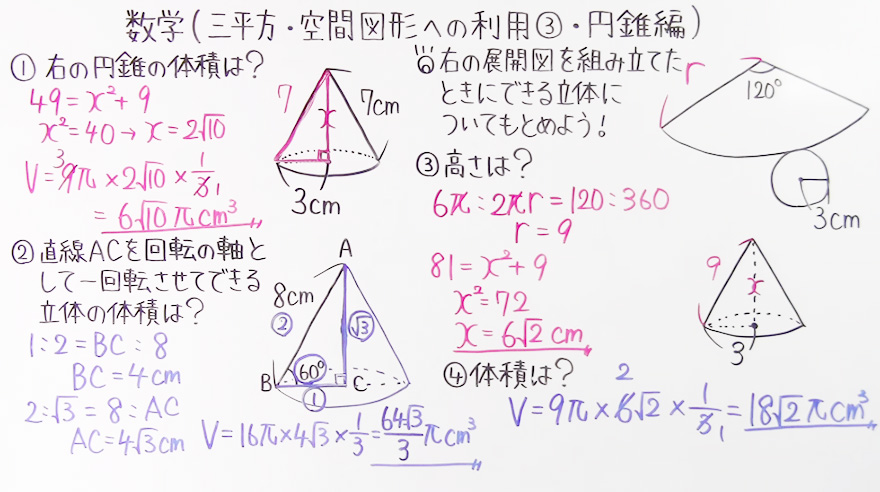 数学(三平方・空間図形への利用③・円錐編)
① 右の円錐の体積は?
49=x²+9
x²=40→x=2√10
V=9π×2√10×1/3
3
1
=6√10πcm³
7
x
7cm
3cm
② 直線ACを回転の軸と
して一回転させてできる
立体の体積は?
1:2=BC:8
BC=4cm
2:√3=8:AC
AC=4√3cm
V=16π×4√3×1/3=64√3/3πcm³
A
8cm
②
√3
60°
B
C
①
右の展開図を組み立てた
ときにできる立体に
ついてもとめよう!
r
120°
3cm
③ 高さは?
6π:2πr=120:360
r=9
81=x²+9
x²=72
x=6√2cm
9
x
3
④ 体積は?
2
V=9π×6√2×1/3=18√2πcm³
1